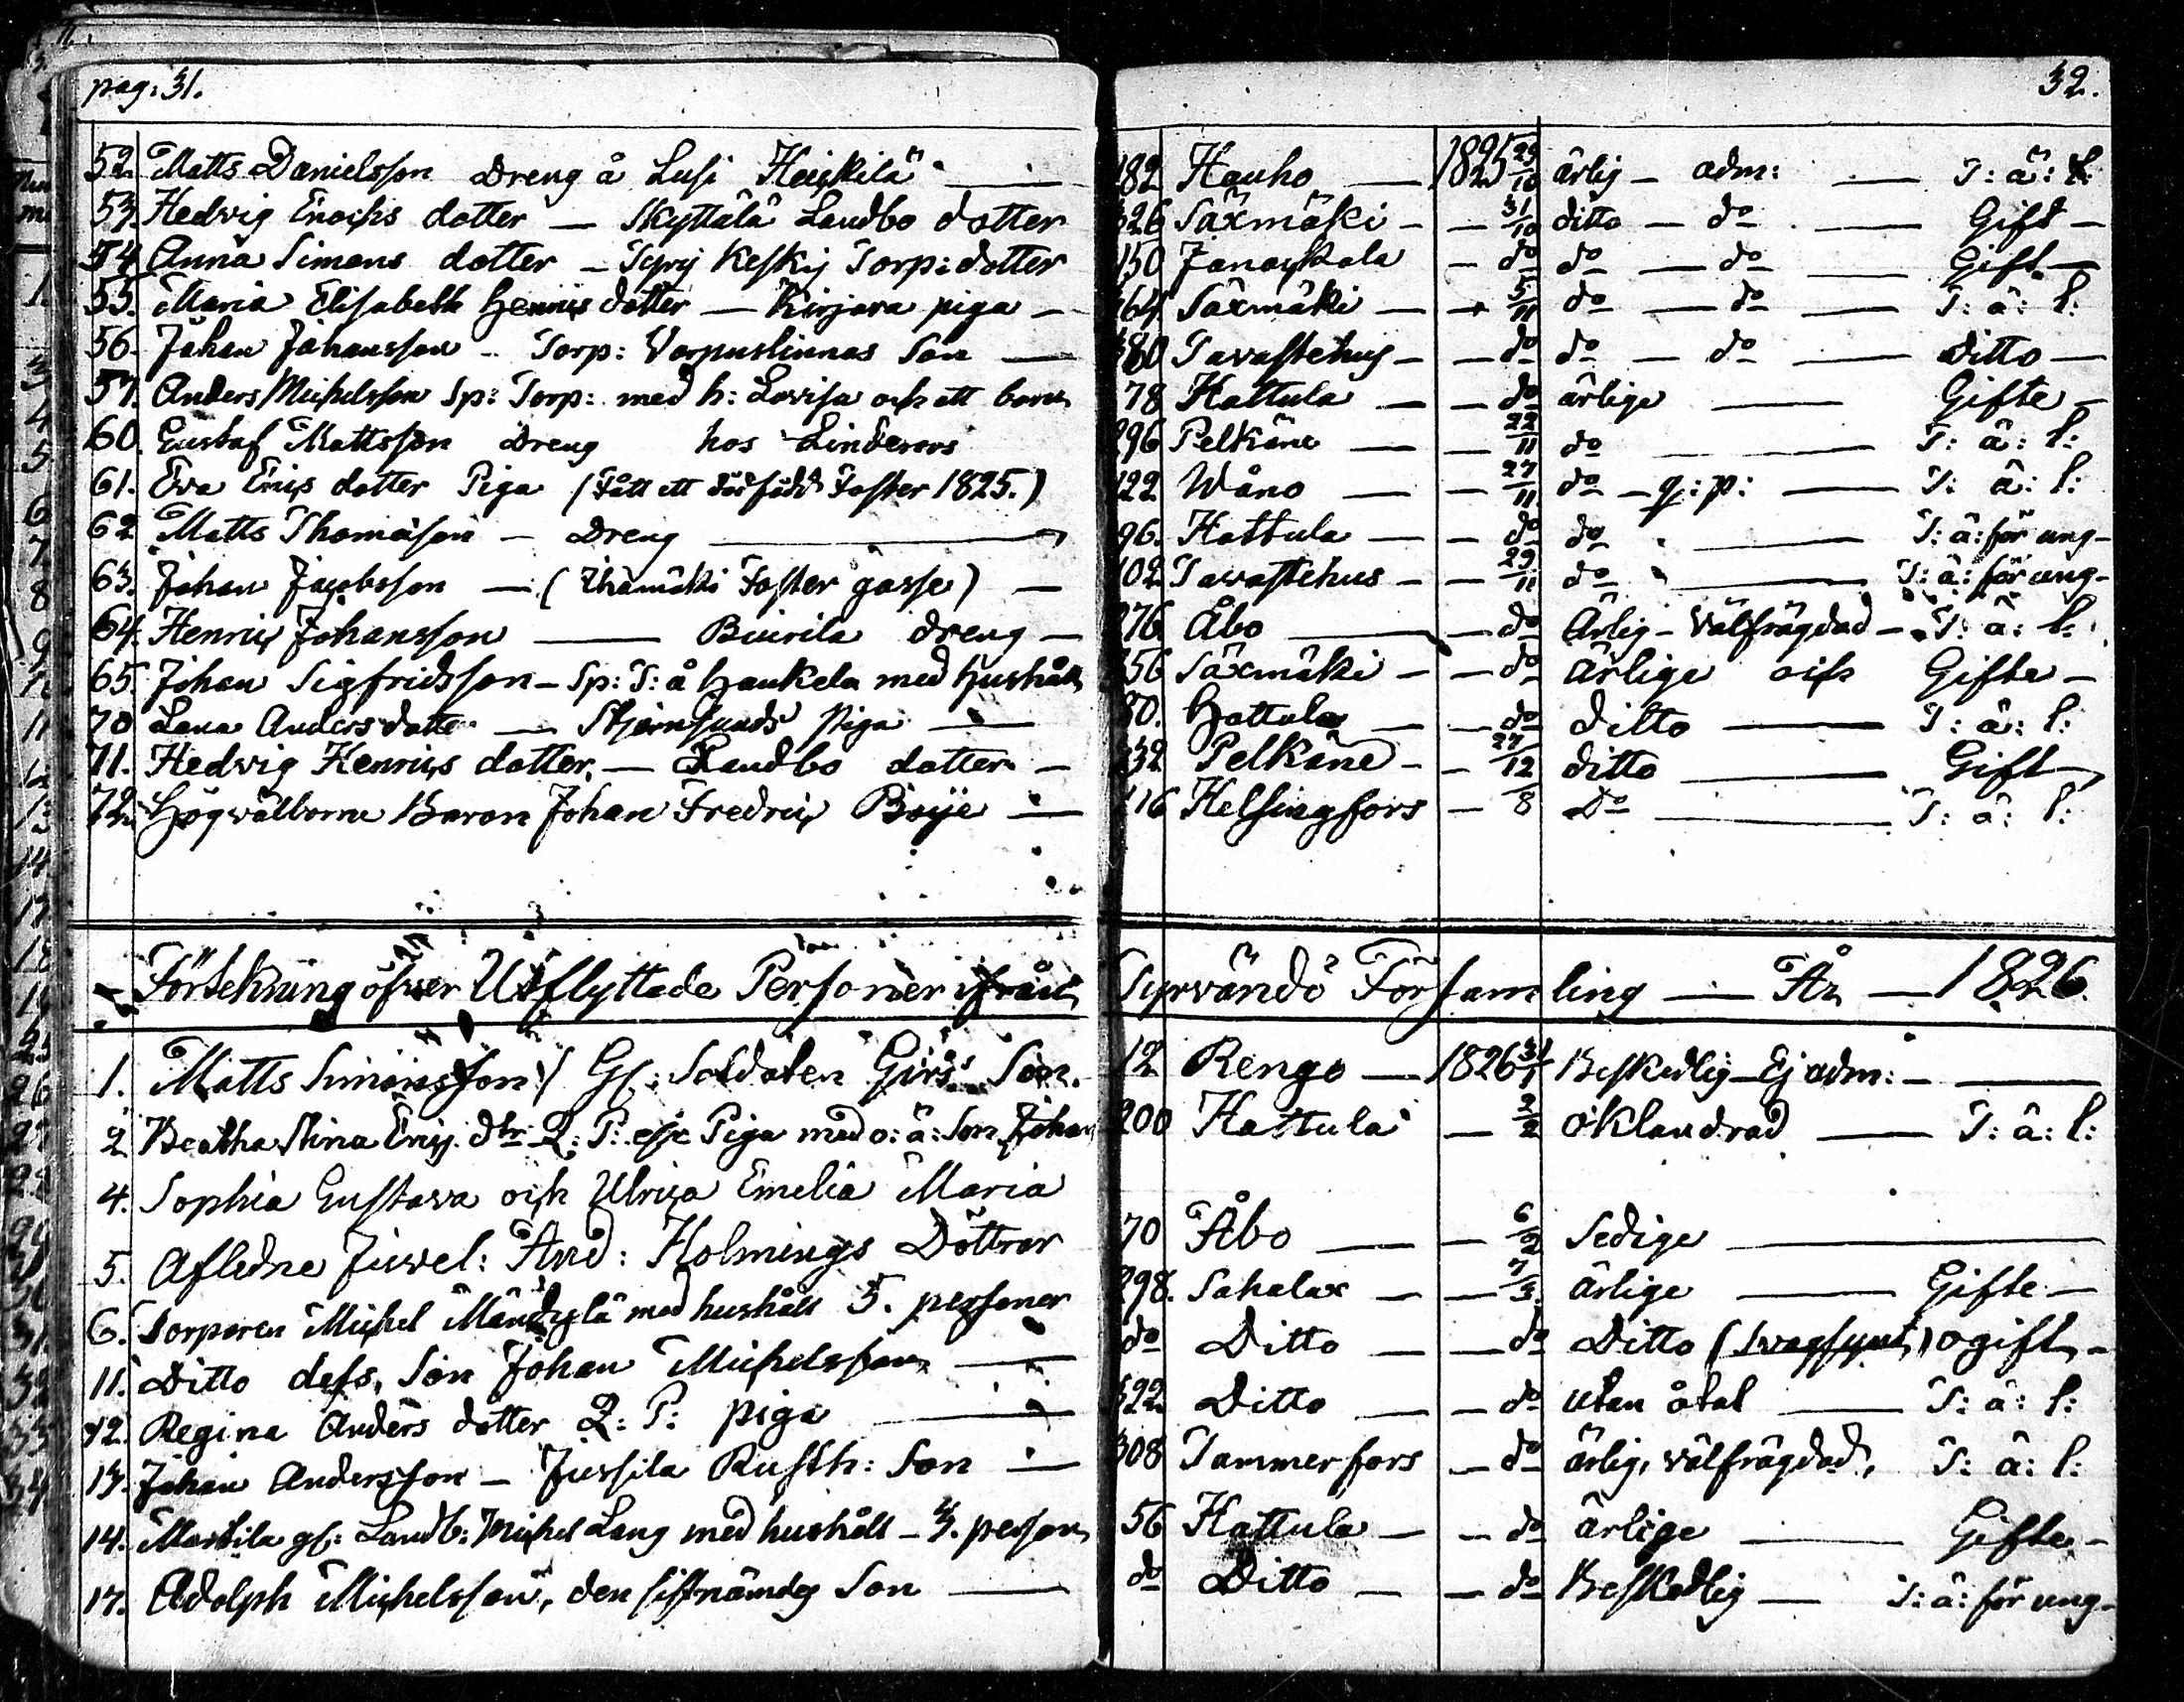 pag: 31.
52. Matts Danielsson Dreng å Lusi Heickilä
53. Hedvig Enochs dotter — Skyttälä Landbo dotter
54. Anna Simons dotter — Tyry Kesky Torp: dotter
55. Maria Elisabeth Henrics dotter — Kirjava piga —
56. Johan Johansson — Torp: Varpuslinnas Son —
57. Anders Michelsson Sp: Torp: med h: Lovisa och ett barn
60. Gustaf Mattsson Dreng hos Linderers
61. Eva Erics dotter Piga (Fått ett Foster 1825.)
62. Matts Thomasson — Dreng
63. Johan Jacobsson — ( Foster gosse) —
64. Henric Johansson — Buirila dreng —
65. Johan Sigfridsson — Sp: T: å Haukela med hushåll
70 Lena Anders dotter — Stjernsunds Piga —
71. Hedvig Henrics dotter — Landbo dotter —
72. Högvälborne Baron Johan Fredric Boije —
Förtekning öfwer Utflyttade Personer ifrån
1. Matts Simonsson / Gl: Soldaten Girs Son.
2 Beatha Stina Eric: dtr Q: P: Piga med o: ä: Son Johan
4. Sophia Gustava och Ulrica Emelia Maria
5. Afledne Juvel: And: Holmings Döttrar
6. Torparen Michel med hushåll 5. personer
11. Ditto dess Son Johan Michelsson —
12. Regina Anders dotter Q: P: piga —
13. Johan Andersson — Jussila Rusth: Son —
14. Marttila gl: Landb: Michel Lang med hushåll — 3. person
17. Adolph Michelsson, den sistnämdes Son —
32.
182 Hauho — 1825 29/10 ärlig — adm: — T: ä: l:
326 Säxmäki — — 31/10 ditto — do — Gift —
150 Janackala — do do — do — Gift —
364 Säxmäki — — 5/11 do — do — T: ä: l:
380 Tavastehus — — do do — do — Ditto —
78 Hattula — — do ärlige — Gifte —
296 Pelkäne — — 22/11 do — T: ä: l:
122 Wåno — — 27/11 do — q: p: — T: ä: l:
96. Hattula — — do do — T: ä: för ung —
102 Tavastehus — — 29/11 do — T: ä: för ung —
276 Åbo — — do Ärlig — Välfrägdad — T: ä: l:
356 Säxmäki — — do ärlige och Gifte —
80. Hattula — — do ditto — T: ä: l:
332 Pelkäne — — 27/12 ditto — Gift
116 Helsingfors — 8 Do — T: ä: l:
Tyrvändö Församling — År — 1826.
12 Rengo — 1826 31/1 Beskedlig — Ej adm: —
200 Hattula — 2/2 oklandrad — T: ä: l:
70 Åbo — — 6/2 Sedige —
298. Sahalax — — 7/3. ärlige — Gifte —
do Ditto — — do Ditto (Svagsynt) ogift —
322. Ditto — — do utan åtal — T: ä: l:
308 Tammerfors — do ärlig, välfrägdad, T: ä: l:
56 Hattula — — do ärlige — Gifte —
do Ditto — — do Beskedlig — T: ä: för ung —